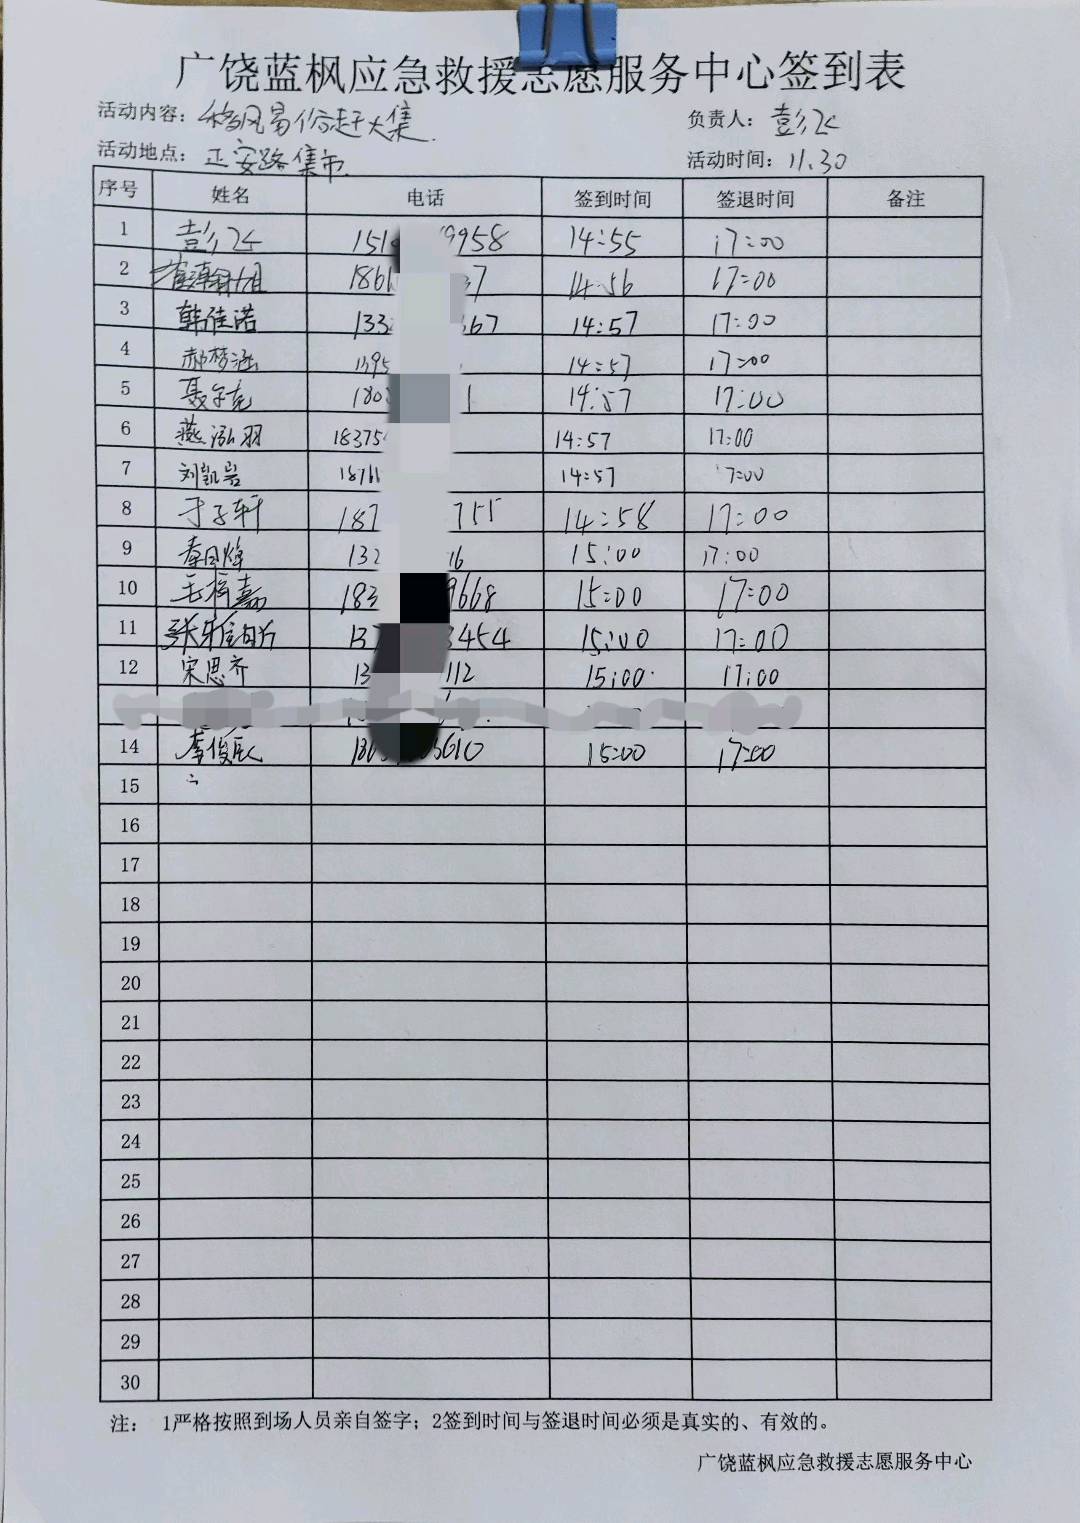 广饶蓝枫应急救援志愿服务中心签到表
活动内容：移风易俗赶大集 负责人：彭飞
活动地点：正安路集市 活动时间：11.30
序号 姓名 电话 签到时间 签退时间 备注
1 彭飞 151 9958 14:55 17:00
2 1861 37 14:56 17:00
3 韩佳诺 133 367 14:57 17:00
4 郝梦涵 1395 14:57 17:00
5 聂尔克 180 1 14:57 17:00
6 燕泓羽 18375 14:57 17:00
7 刘凯岩 1876 14:57 17:00
8 于子轩 187 755 14:58 17:00
9 132 16 15:00 17:00
10 183 9668 15:00 17:00
11 13 3454 15:00 17:00
12 宋思齐 13 112 15:00 17:00
14 李俊辰 3610 15:00 17:00
15
16
17
18
19
20
21
22
23
24
25
26
27
28
29
30
注： 1严格按照到场人员亲自签字；2签到时间与签退时间必须是真实的、有效的。
广饶蓝枫应急救援志愿服务中心